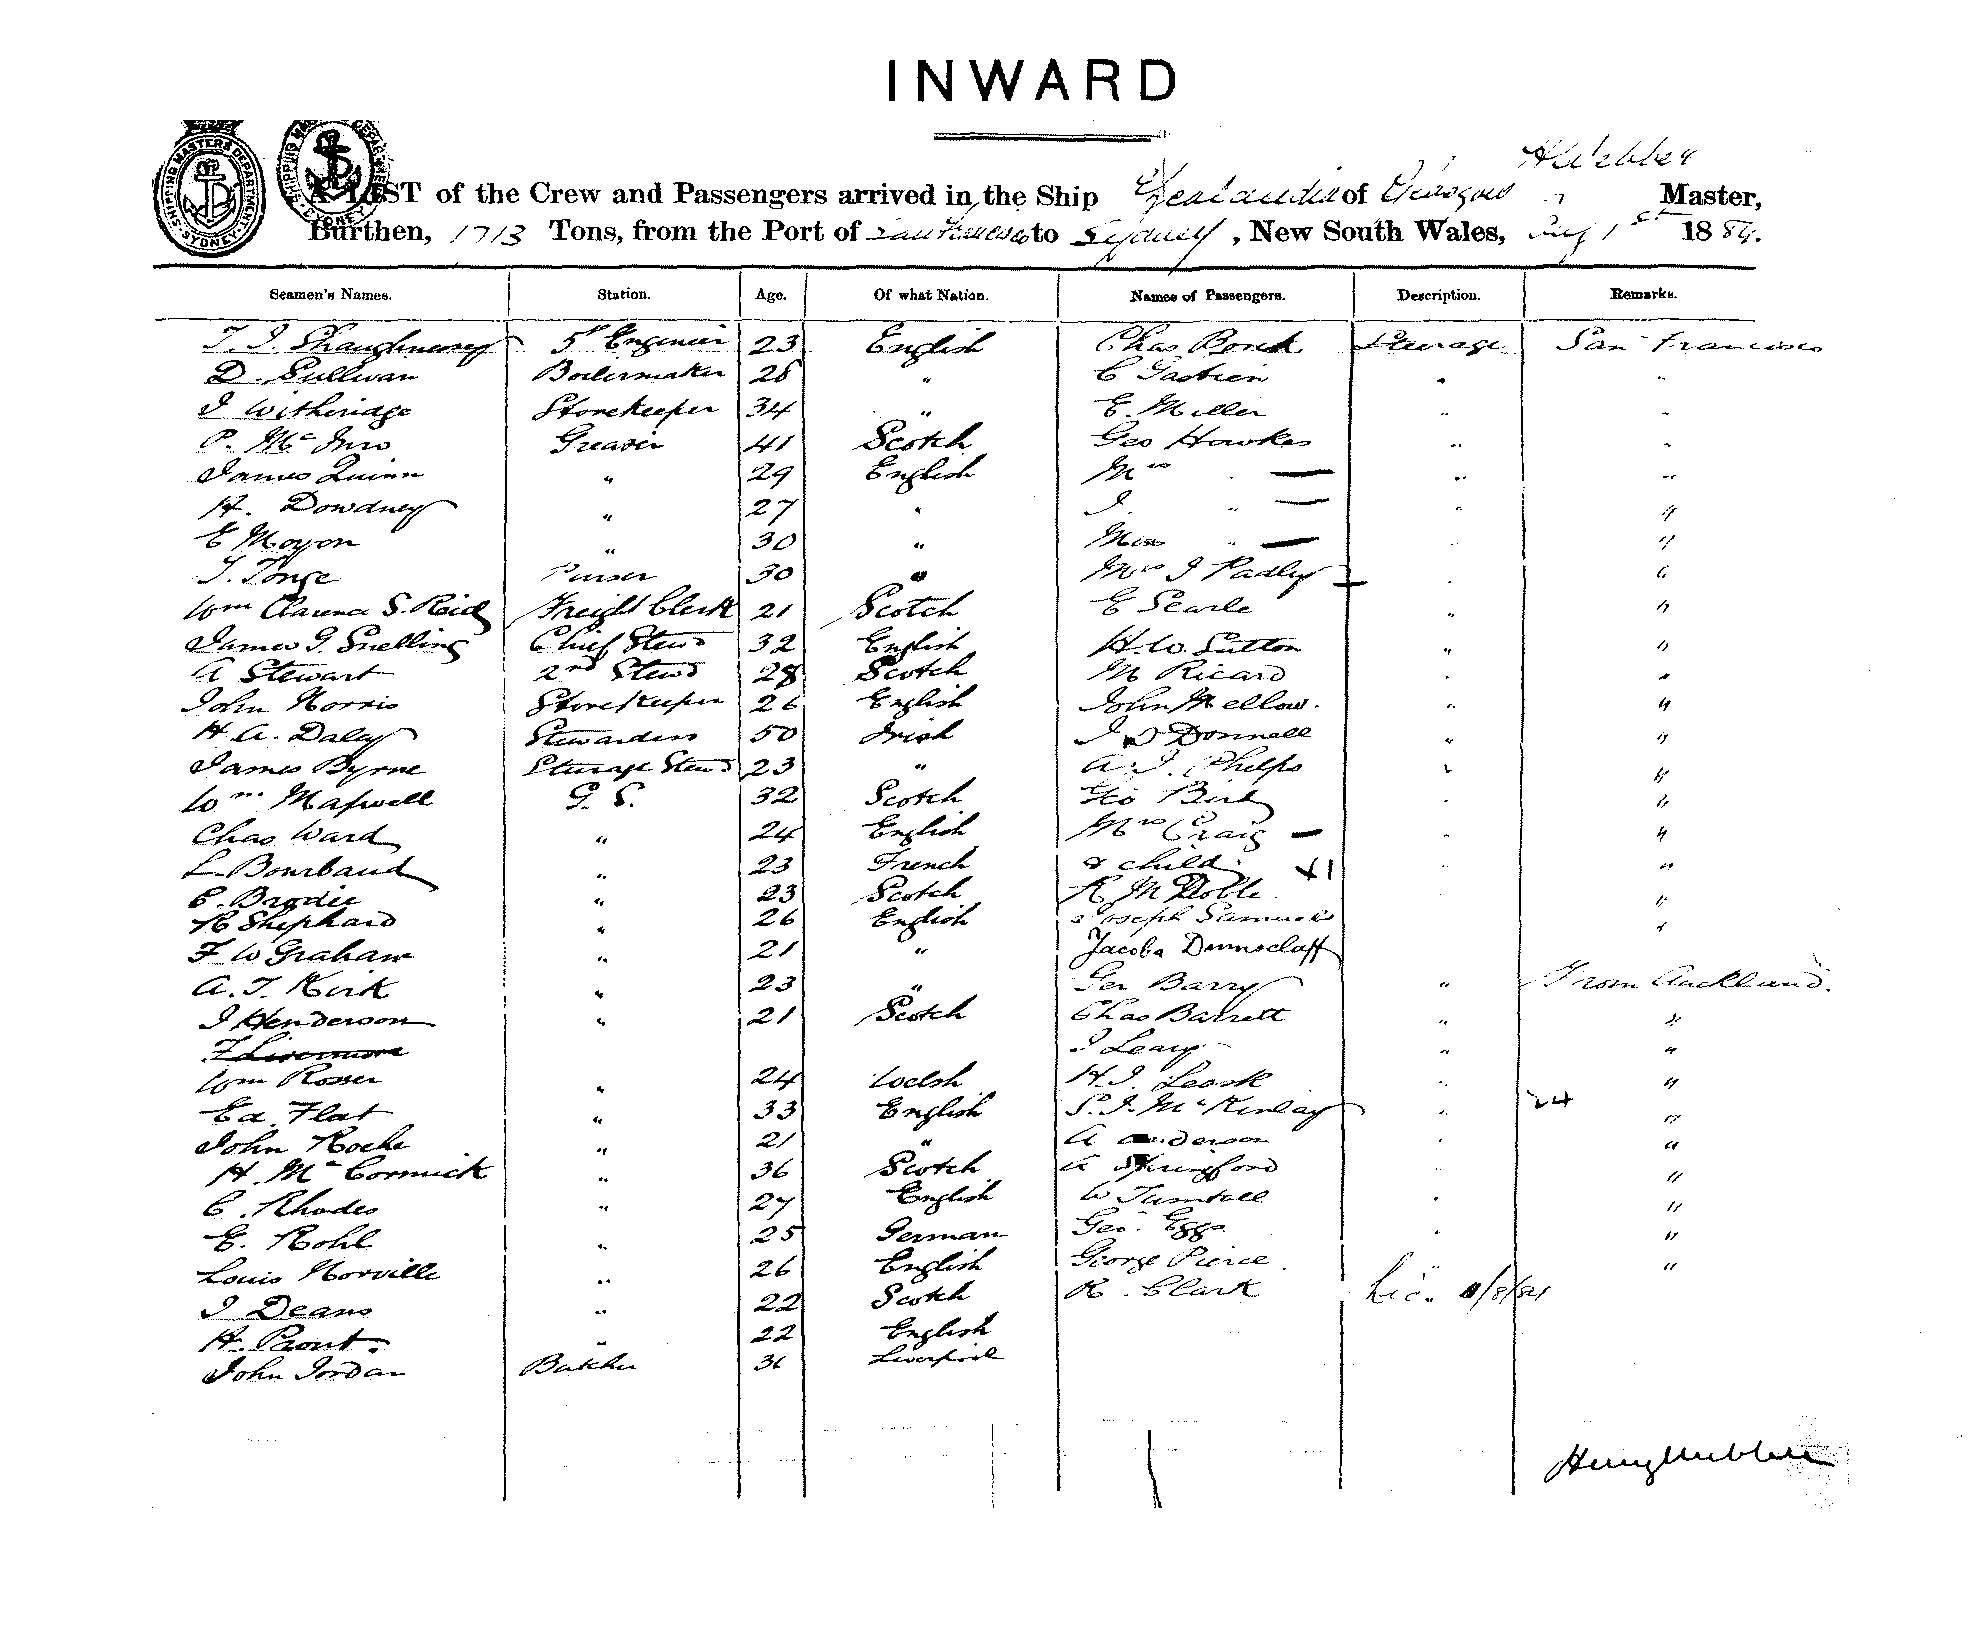 INWARD
SHIPPING MASTERS DEPARTMENT SYDNEY
H Webber
A LIST of the Crew and Passengers arrived in the Ship Zealandia of Glasgow Master,
Burthen, 1713 Tons, from the Port of San Francisco to Sydney, New South Wales, Aug 1st 1884.
Seamen's Names. Station. Age. Of what Nation. Names of Passengers. Description. Remarks.
T. J. Shaughnessy 5th Engineer 23 English Chas Steerage San Francisco
D. Sullivan Boilermaker 28 " C " "
J Witheridge Storekeeper 34 " E. Miller " "
P. Mc Greaser 41 Scotch Geo Hawkes " "
James Quinn " 29 English Mrs " — " "
H. Dowdney " 27 " J. " — " "
E Moyon " 30 " Miss " — " "
J. Tonge Purser 30 " Mrs J Padley " "
Wm Clarence S. Reid Freight Clerk 21 Scotch E Searle " "
James G. Snelling Chief Stewd 32 English H. W. Sutton " "
A Stewart 2nd Stewd 28 Scotch M Ricard " "
John Norris Storekeeper 26 English John Mellow. " "
H. A. Daley Stewardess 50 Irish J O Donnell " "
James Byrne Steerage Stewd 23 " A. J. Phelps " "
Wm. Maxwell G. S. 32 Scotch Geo Bird " "
Chas Ward " 24 English Mrs Craig — " "
L. Bourbaud " 23 French & child. X1 " "
C. Brodie " 23 Scotch R M "
R Shephard " 26 English Joseph Samuels "
F W Graham " 21 " Jacobs
A. T. Kirk " 23 " Geo Barry " From Auckland.
J Henderson " 21 Scotch Chas Barrett " "
J Leary " "
Wm Rosser " 24 Welsh H. J. Leask " "
Ed. Flat " 33 English S. J. McKinlay " 24 "
John Roche " 21 " A Anderson " "
H. Mc Cormick " 36 Scotch A Springford " "
C. Rhodes " 27 English W Tunstall " "
E. Kohl " 25 German Geo. Eggs " "
Louis Norville " 26 English George Pierce " "
J Deans " 22 Scotch R. Clark
H. Prout. " 22 English
John Jordan Butcher 36 Liverpool
Henry Webber